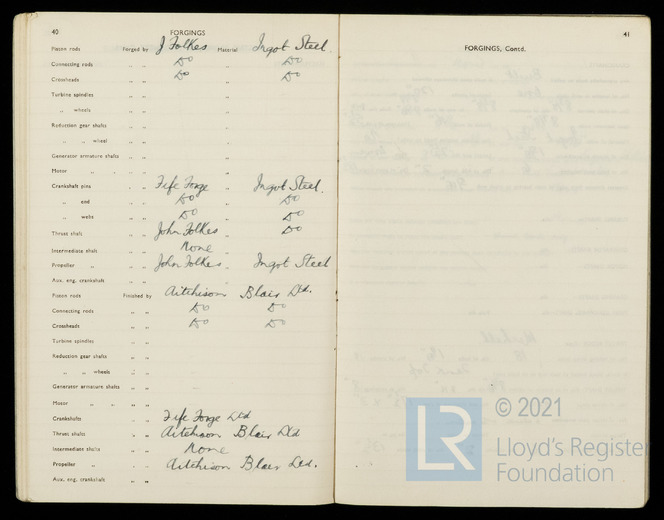 40
FORGINGS
Piston rods Forged by J Folkes Material Ingot Steel
Connecting rods " " Do " Do
Crossheads " " Do " Do
Turbine spindles " " "
" wheels " " "
Reduction gear shafts " " "
" " wheel " " "
Generator armature shafts " " "
Motor " " " " "
Crankshaft pins " " Fife Forge " Ingot Steel.
" end " " Do " Do
" webs " " Do " Do
Thrust shaft " " John Folkes " Do
Intermediate shaft " " None "
Propeller " " " John Folkes " Ingot Steel
Aux. eng. crankshaft " " "
Piston rods Finished by Aitchison Blair Ltd.
Connecting rods " " Do Do
Crossheads " " Do Do
Turbine spindles " "
Reduction gear shafts " "
" " wheels " "
Generator armature shafts " "
Motor " " " "
Crankshafts " " Fife Forge Ltd
Thrust shafts " " Aitchison Blair Ltd
Intermediate shafts " " None
Propeller " " " Aitchison Blair Ltd.
Aux. eng. crankshaft " "
41
FORGINGS, Contd.
LR
© 2021
Lloyd's Register
Foundation